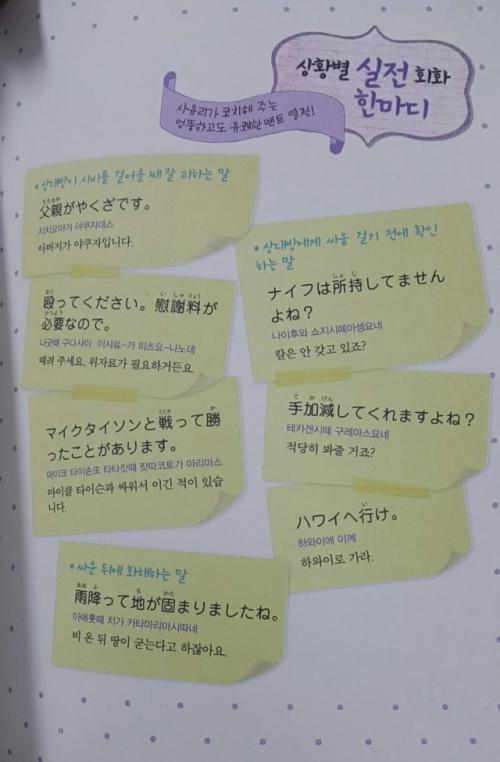 상황별 실전 회화
한마디
사유리가 코치해 주는
엉뚱하고도 유쾌한 멘트 열전!
• 상대방이 시비를 걸어올 때 잘 피하는 말
父親がやくざです。
치치오야가 야쿠자데스
아버지가 야쿠자입니다.
殴ってください。慰謝料が
必要なので。
나굿떼 구다사이 이샤료-가 히츠요-나노데
때려 주세요. 위자료가 필요하거든요.
マイクタイソンと戦って勝
ったことがあります。
마이크 타이손또 타타캇떼 캇따코토가 아리마스
마이클 타이슨과 싸워서 이긴 적이 있습
니다.
• 상대방에게 싸움 걸기 전에 확인
하는 말
ナイフは所持してません
よね?
나이후와 쇼지시떼마셍요네
칼은 안 갖고 있죠?
手加減してくれますよね?
테카겐시떼 구레마스요네
적당히 봐줄 거죠?
ハワイへ行け。
하와이에 이께
하와이로 가라.
• 싸운 뒤에 화해하는 말
雨降って地が固まりましたね。
아메훗떼 치가 카타마리마시따네
비 온 뒤 땅이 굳는다고 하잖아요.